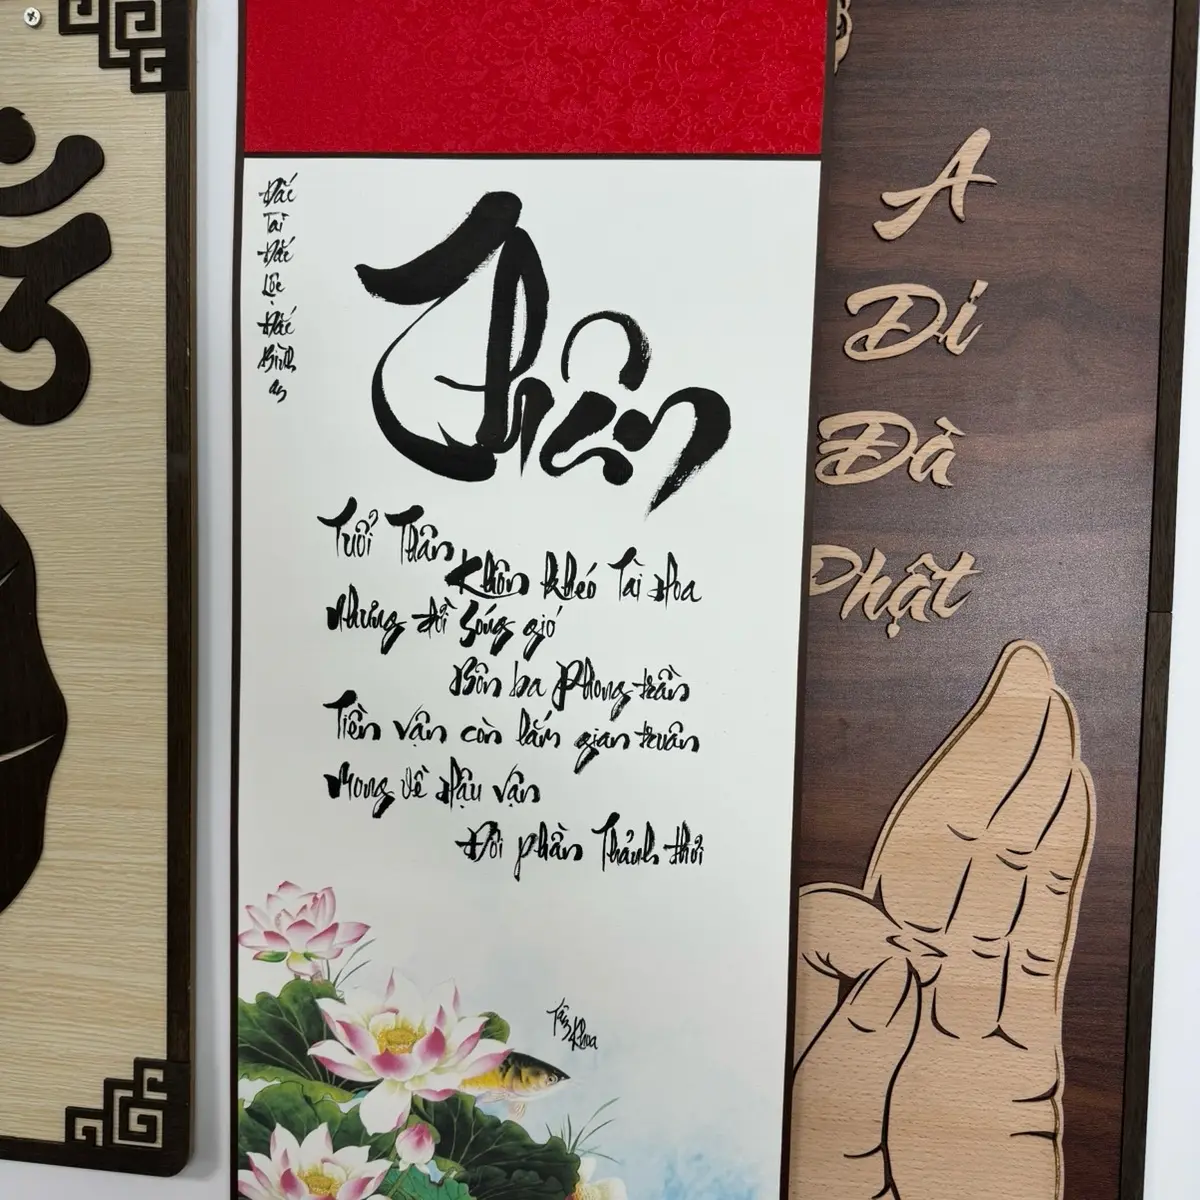 Đắc
Tài
Đắc
Lộc
Đắc
Bình
an
Thân
Tuổi Thân
Khôn khéo Tài Hoa
Nhưng đời Sóng gió
Bôn ba Phong trần
Tiền vận còn lắm gian truân
Mong về Hậu vận
Đời phần Thảnh thơi
Tâm
Khoa
A
Di
Đà
Phật